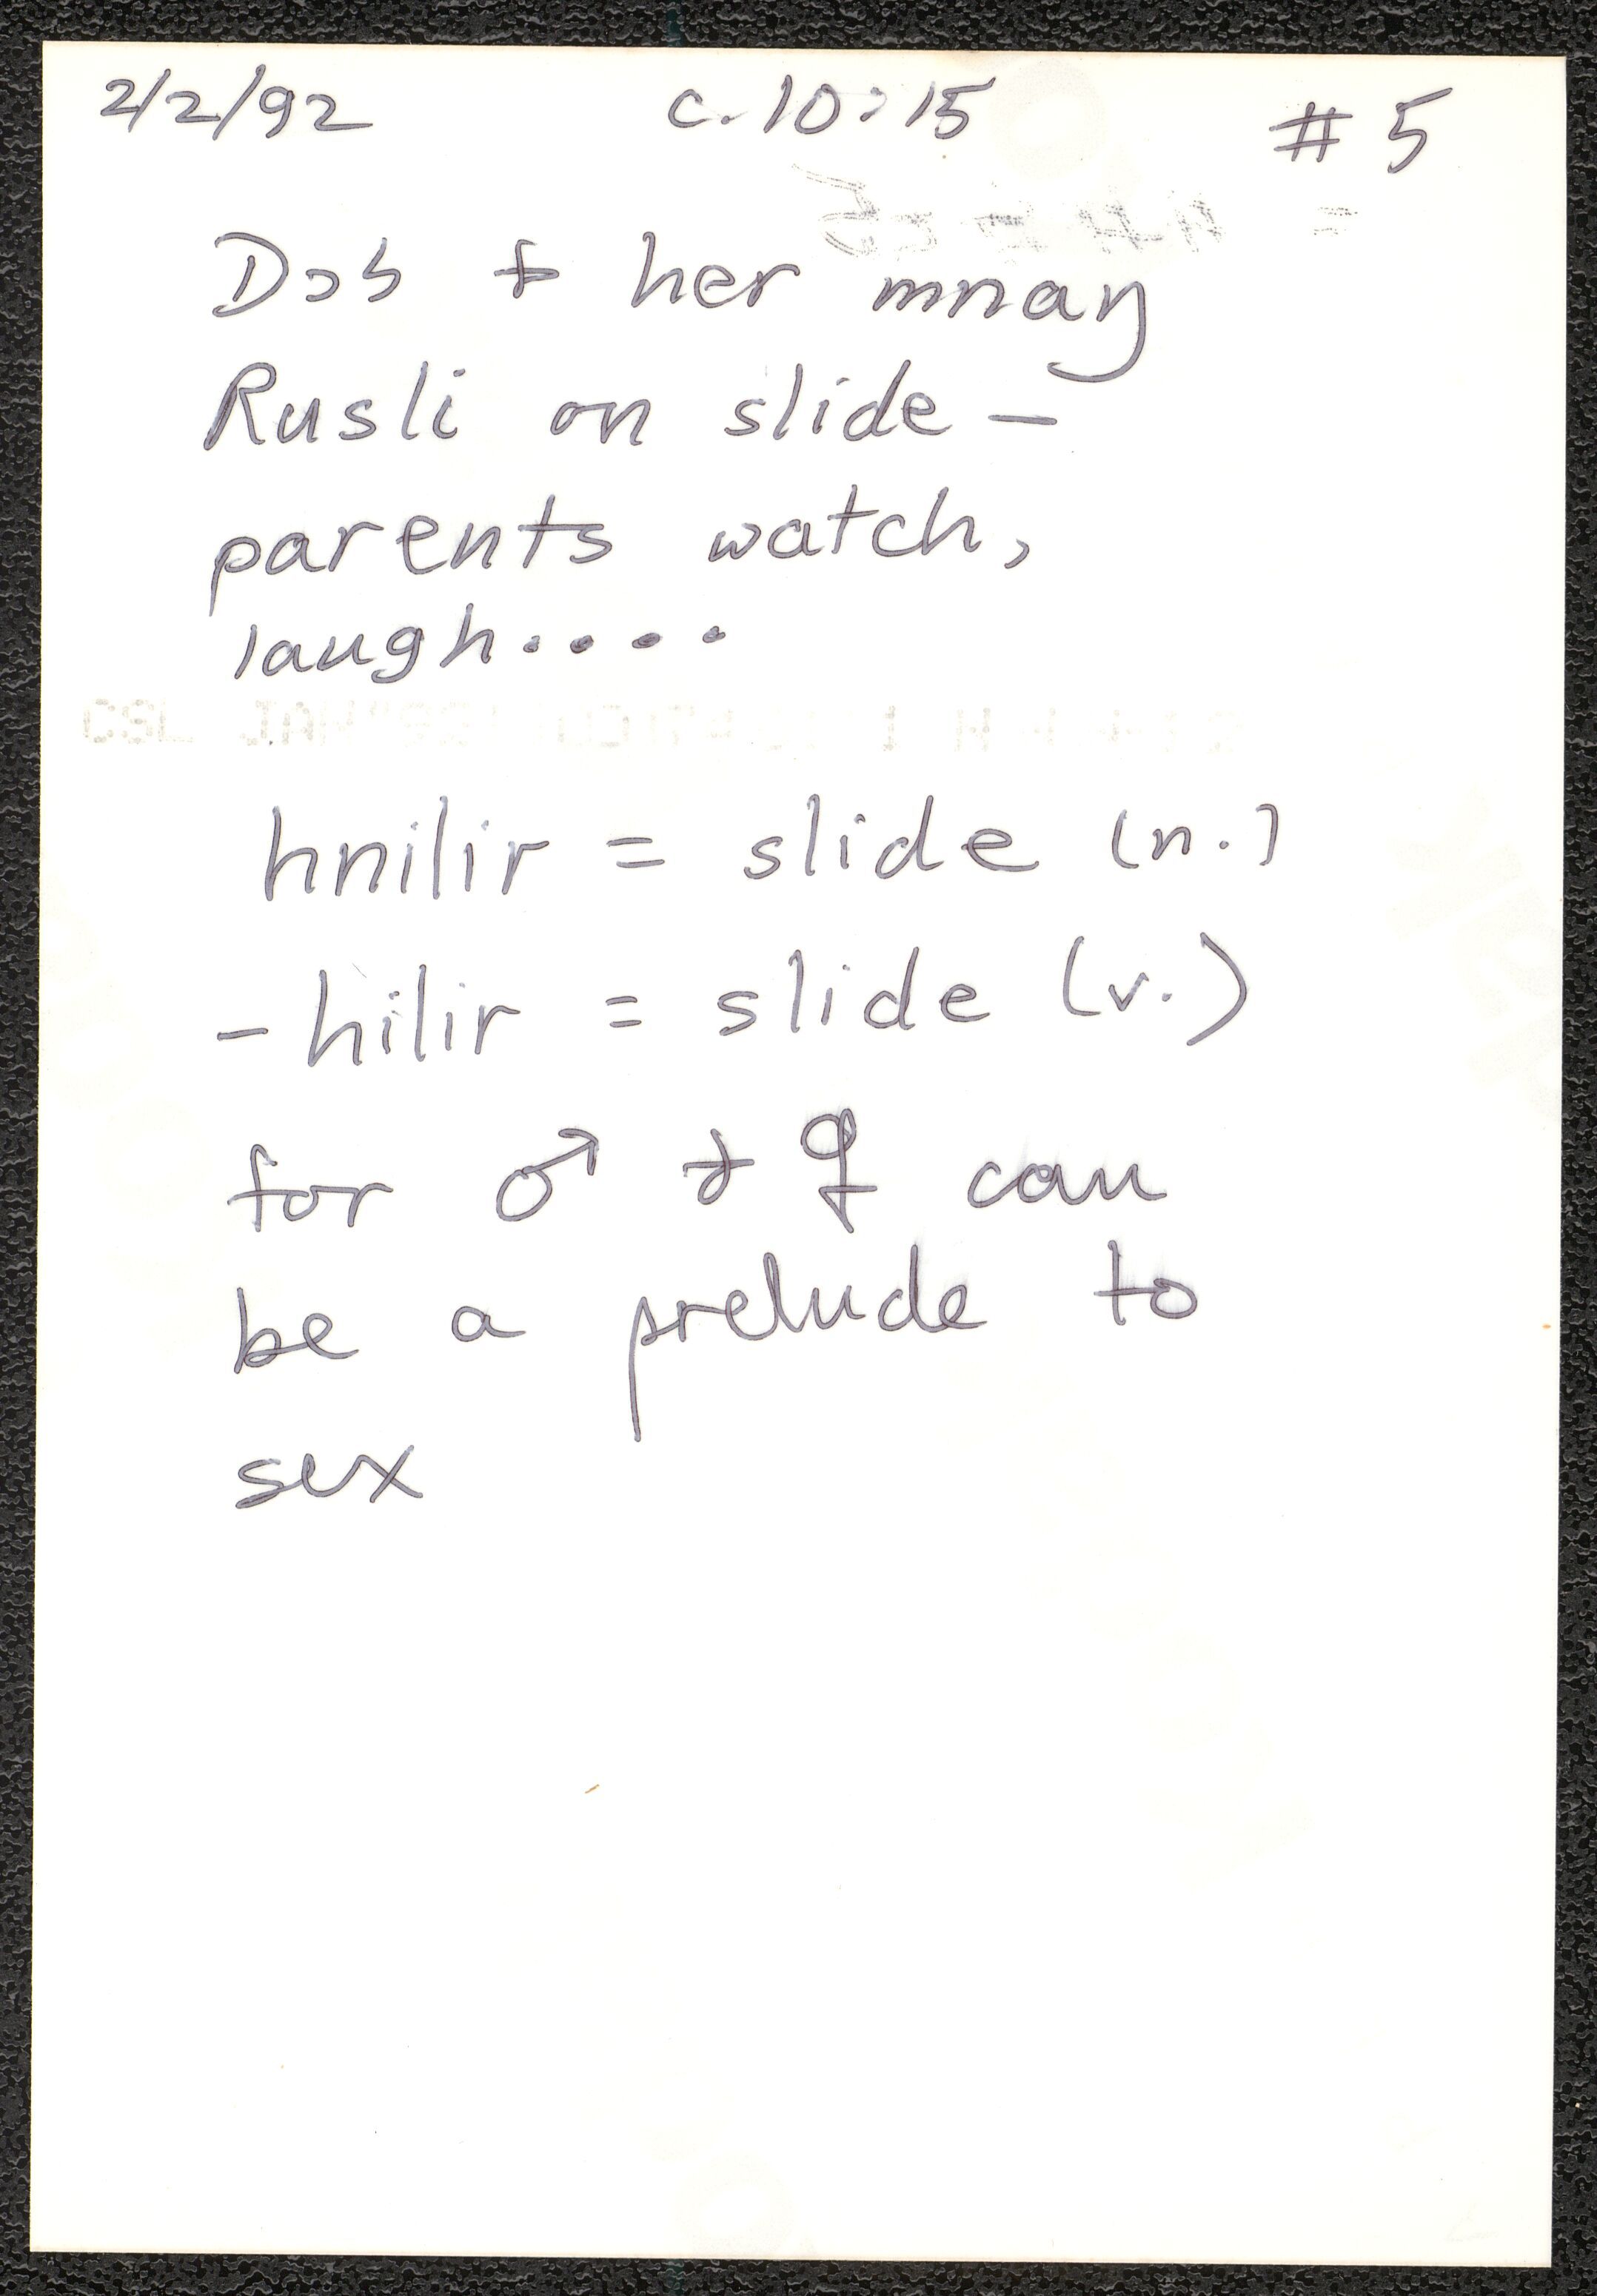 2/2/92 c. 10:15 #5
Dɔs + her mnaŋ
Rusli on slide —
parents watch,
laugh....
hnilir = slide (n.)
- hilir = slide (v.)
for ♂ + ♀ can
be a prelude to
sex